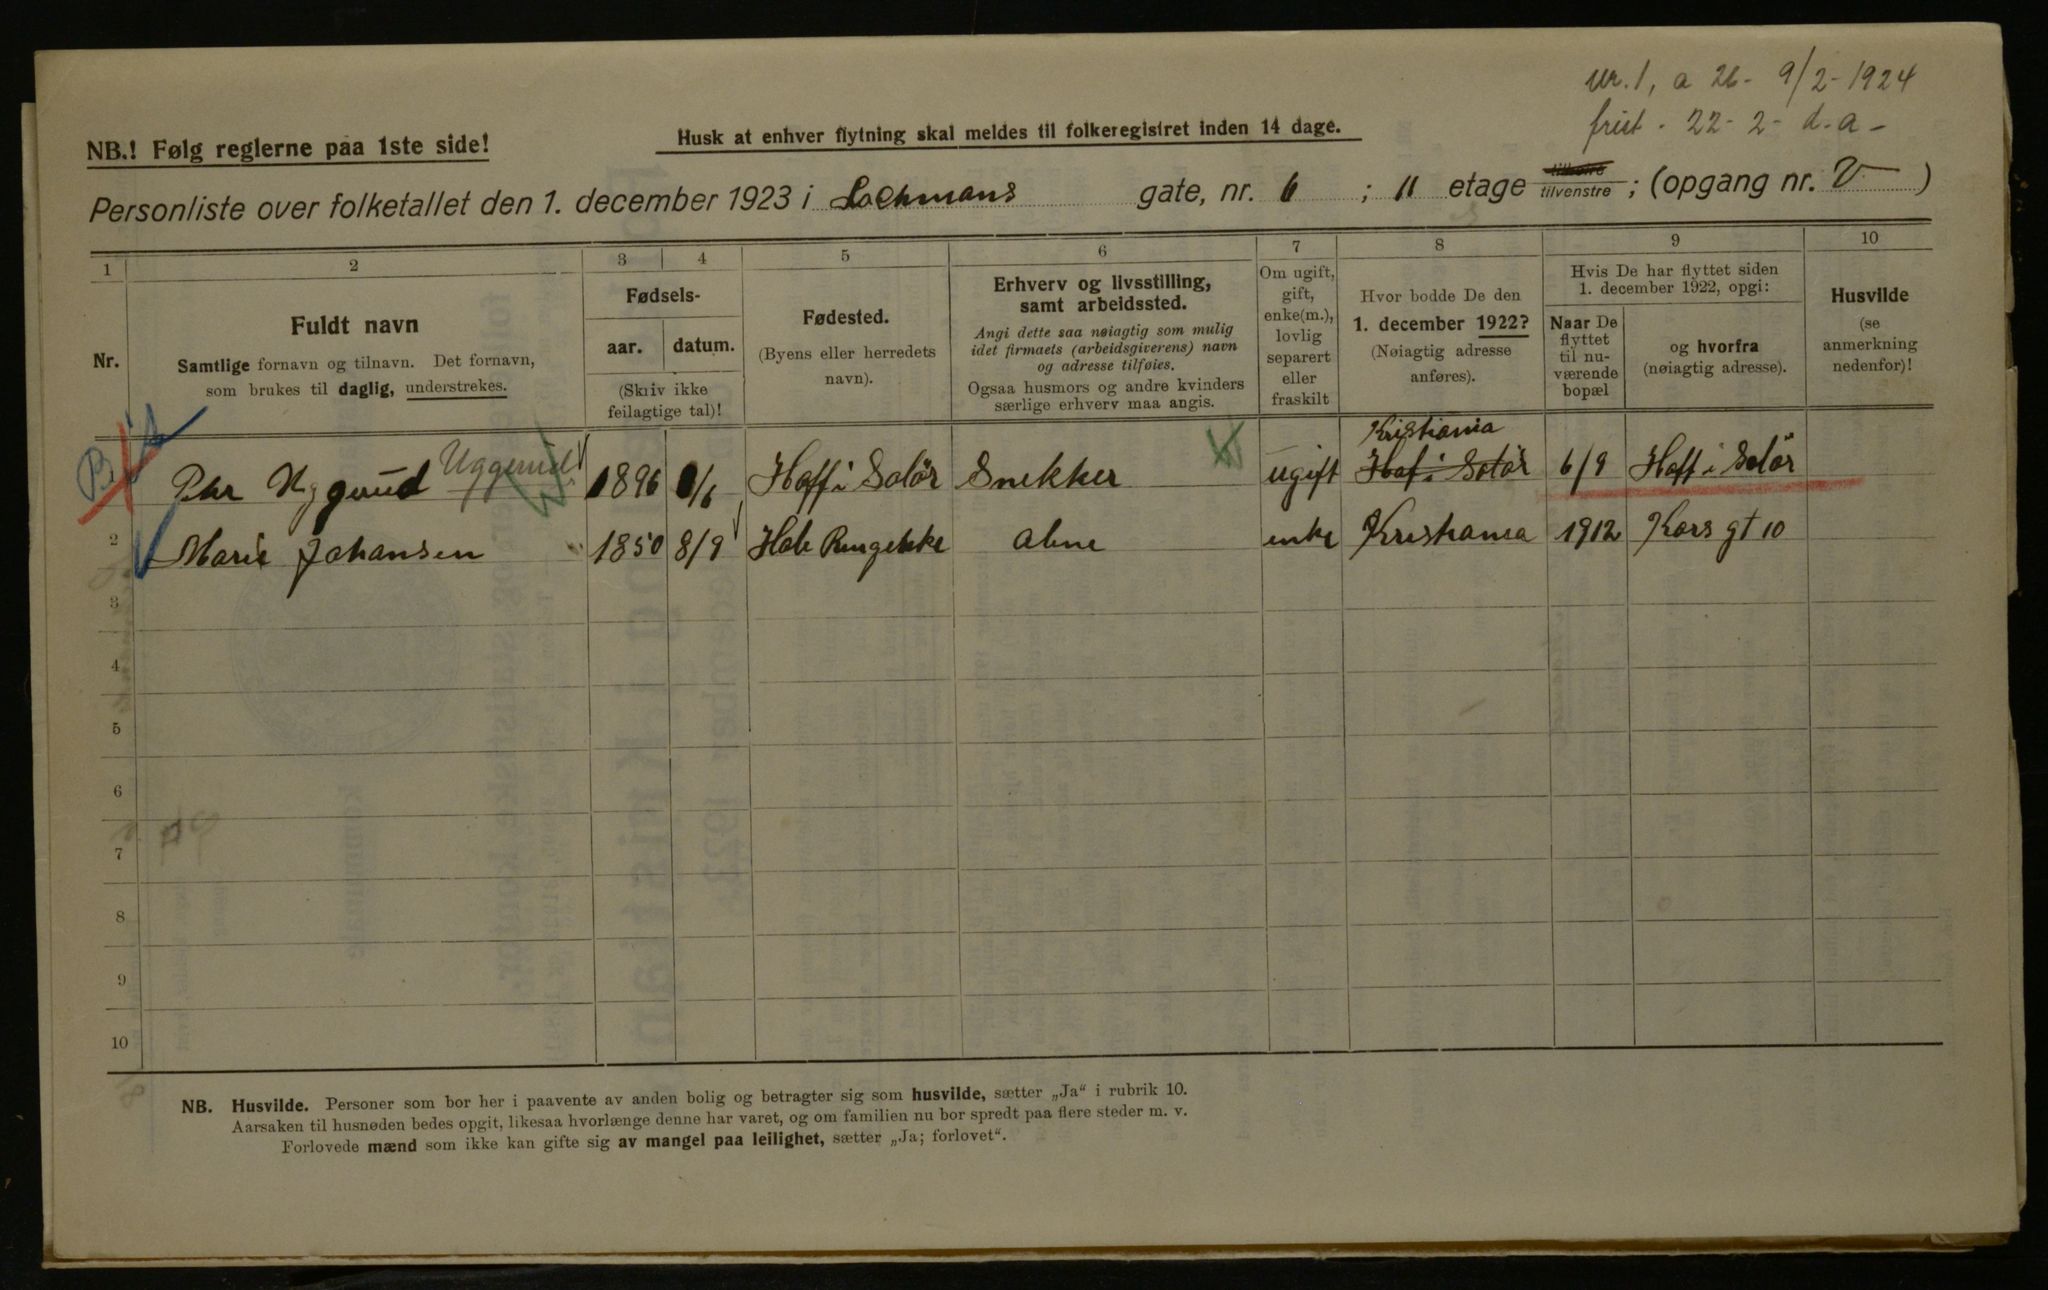 Nr. 1, a 26 - 9/2 - 1924
frist - 22 - 2 - d. a -
NB.! Følg reglerne paa 1ste side!
Husk at enhver flytning skal meldes til folkeregistret inden 14 dage.
Personliste over folketallet den 1. december 1923 i Lochmans gate, nr. 6 ; 11 etage tilhøire tilvenstre ; (opgang nr. V )
1 2 3 4 5 6 7 8 9 10
Nr.
Fuldt navn
Samtlige fornavn og tilnavn. Det fornavn,
som brukes til daglig, understrekes.
Fødsels-
aar. datum.
(Skriv ikke
feilagtige tal)!
Fødested.
(Byens eller herredets
navn).
Erhverv og livsstilling,
samt arbeidssted.
Angi dette saa nøiagtig som mulig
idet firmaets (arbeidsgiverens) navn
og adresse tilføies.
Ogsaa husmors og andre kvinders
særlige erhverv maa angis.
Om ugift,
gift,
enke(m.),
lovlig
separert
eller
fraskilt
Hvor bodde De den
1. december 1922?
(Nøiagtig adresse
anføres).
Hvis De har flyttet siden
1. december 1922, opgi:
Naar De
flyttet
til nu-
værende
bopæl
og hvorfra
(nøiagtig adresse).
Husvilde
(se
anmerkning
nedenfor)!
Kristiania
Per Uggerud Uggerud 1896 1/6 Hoff i Solör Snekker ugift Hof i Solör 6/9 Hoff i Solör
2 Marie Johansen 1850 8/9 Hole Ringerike alene enke Kristiania 1912 Kors gt 10
3
4
5
6
7
8
9
10
NB. Husvilde. Personer som bor her i paavente av anden bolig og betragter sig som husvilde, sætter „Ja“ i rubrik 10.
Aarsaken til husnøden bedes opgit, likesaa hvorlænge denne har varet, og om familien nu bor spredt paa flere steder m. v.
Forlovede mænd som ikke kan gifte sig av mangel paa leilighet, sætter „Ja; forlovet“.